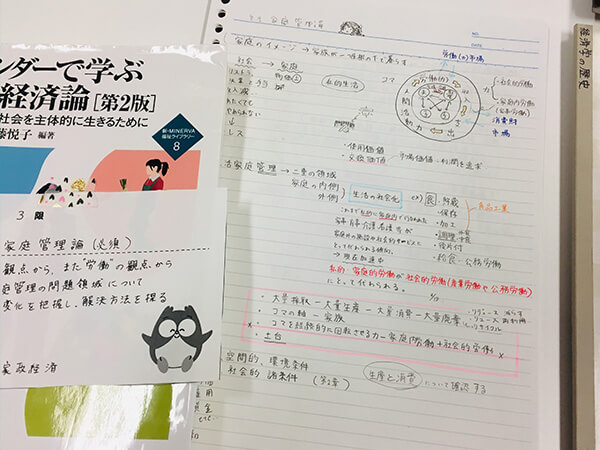 ンダーで学ぶ
経済論[第2版]
社会を主体的に生きるために
藤悦子 編著
新・MINERVA
福祉ライブラリー
8
3限
家庭管理論(必須)
観点から、また労働の観点から
庭管理の問題領域について
変化を把握し、解決方法を探る
家政経済
NO.
DATE
家庭のイメージ→家族が一
社会→家庭
物価
私的生活
コマ
労働(力)市場
人間
活動
労働
力
社会的労働
家庭内労働
消費財
市場
・使用価値
・交換価値
市場価値
利潤を追求
活家庭管理→二重の領域
家庭の内側
外側
生活の社会化
ex)食
・貯蔵
・保存
・加工
・調理
・後片付
・給食・公務労働
食品工業
家事
介護看護等が
とって代わられる
→現在加速中
私的 家庭的労働が社会的労働(産業労働や公務労働)
にとって代わられる。
・大量採取ー大量生産ー大量消費ー大量廃棄
リデュース 減らす
リユース 再利用
リサイクル
・コマの軸ー家族
・コマを持続的に回転させる力ー家庭内労働+社会的労働
・土台
空間的、環境条件
社会的 諸条件(第2章)
生産と消費について確認する
経済学の歴史